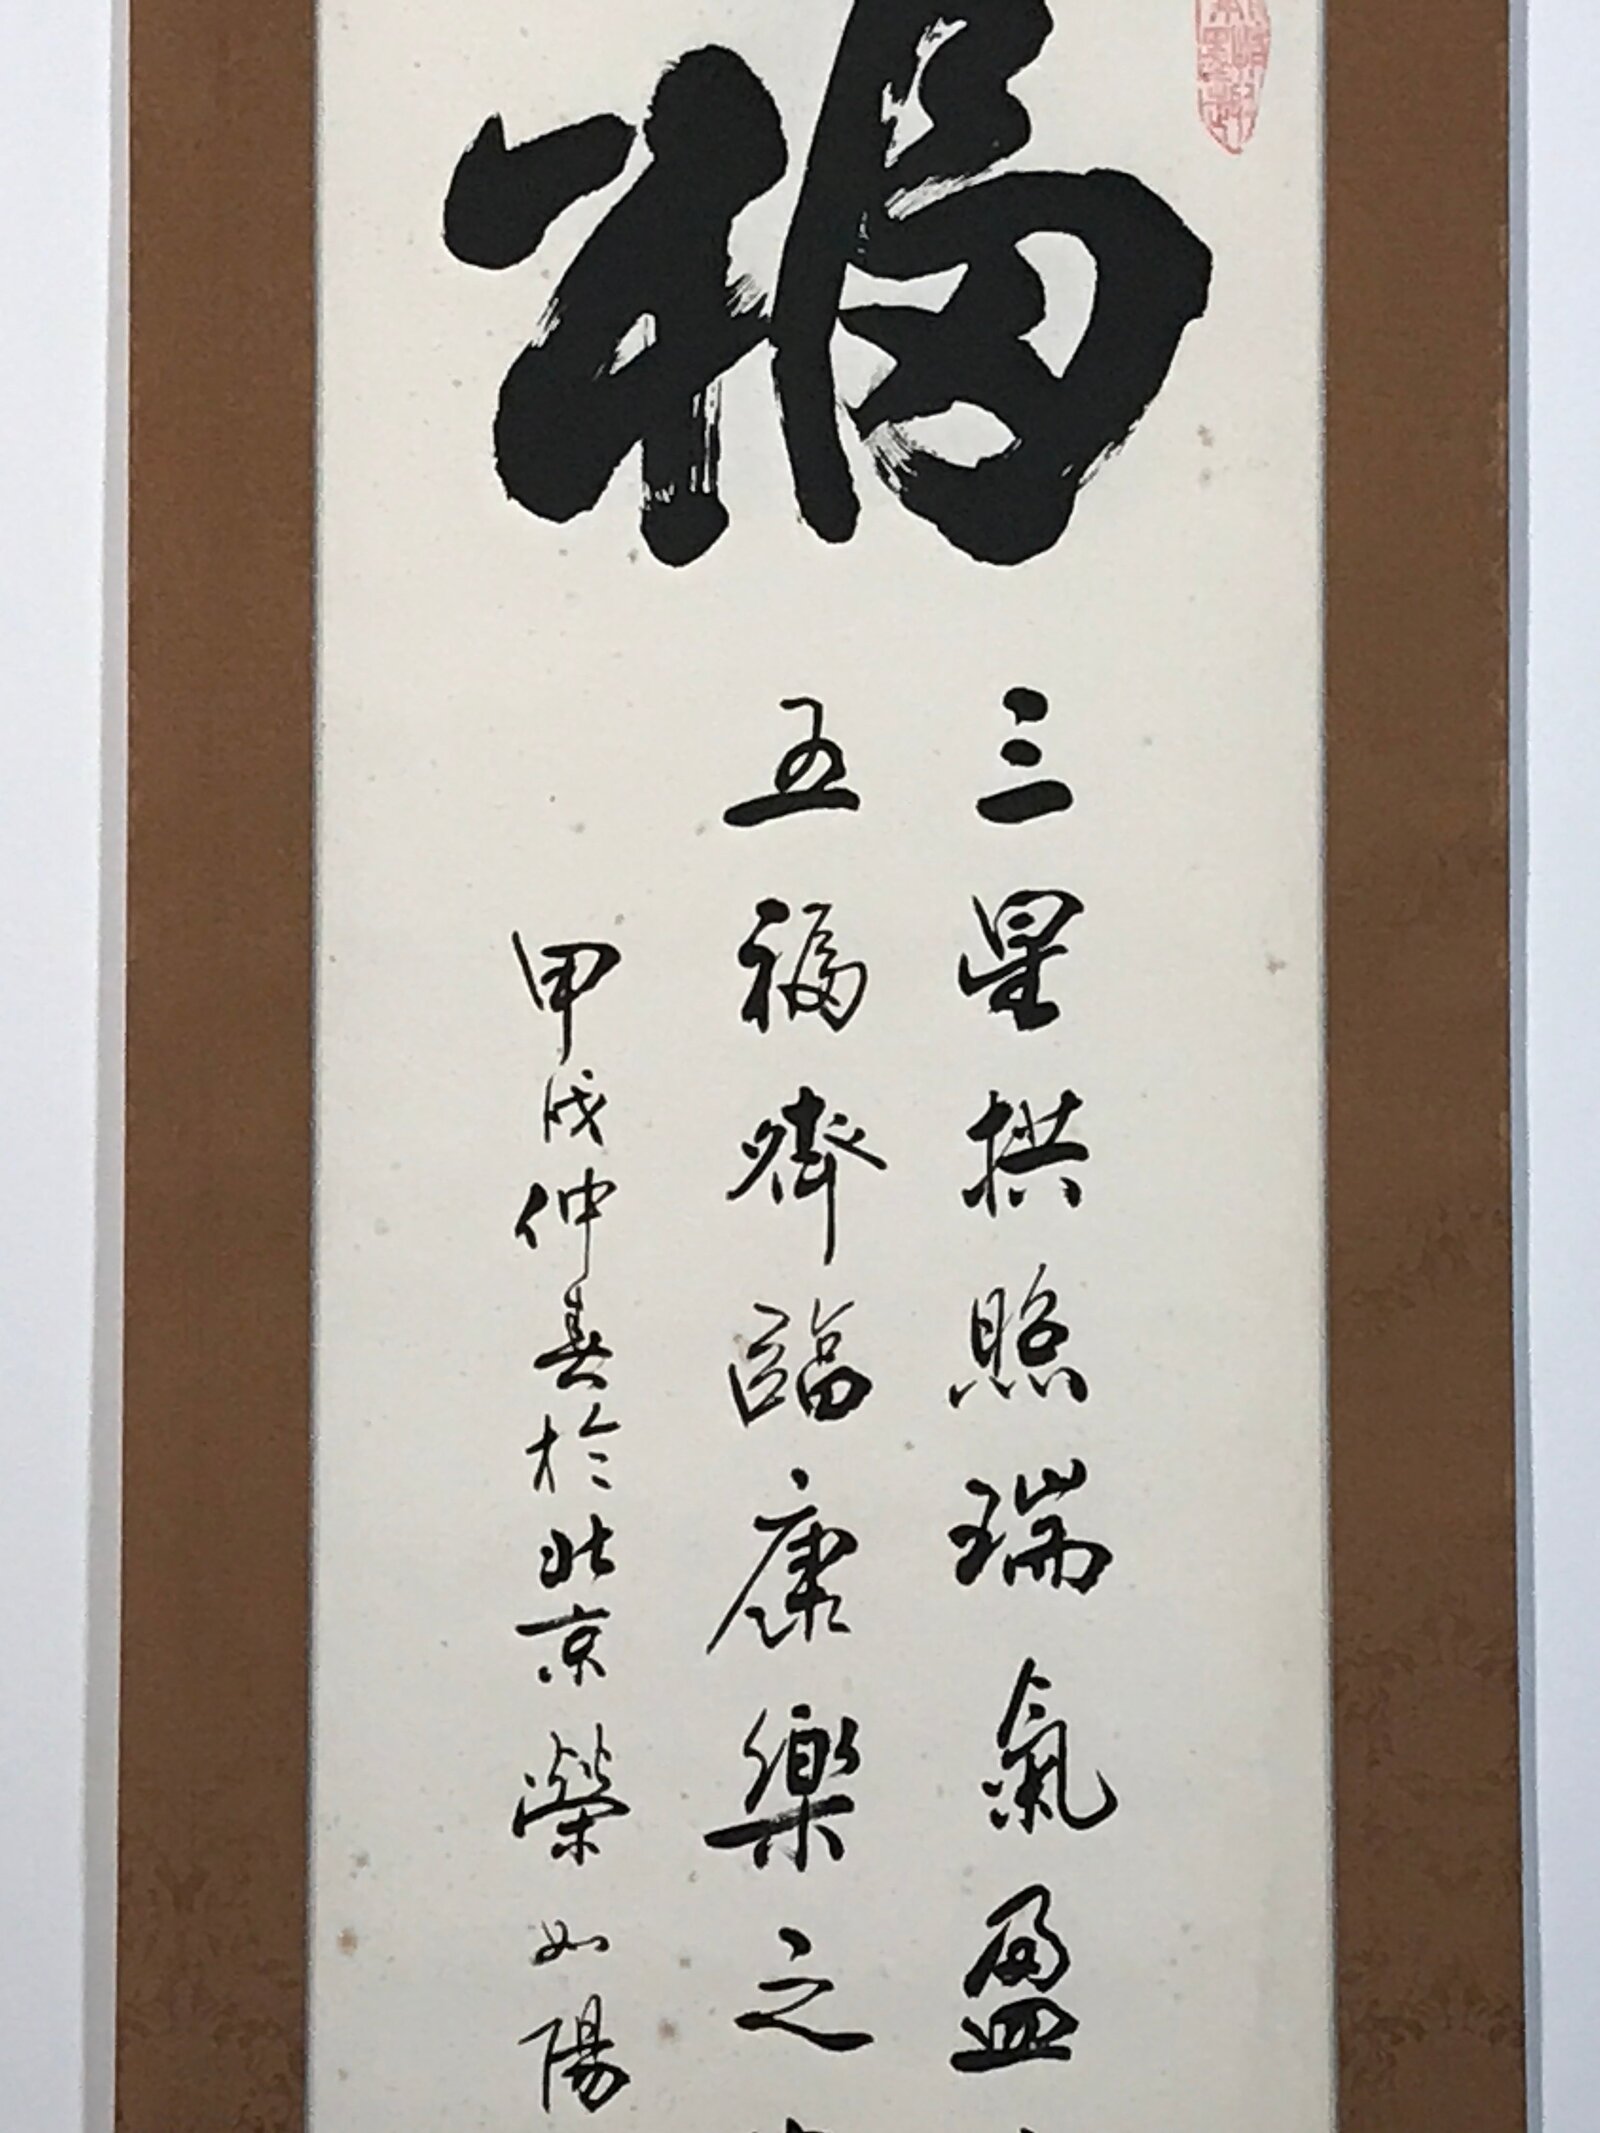 福
三星拱照瑞氣盈
五福齊臨康樂之
甲戌仲春於北京榮如陽